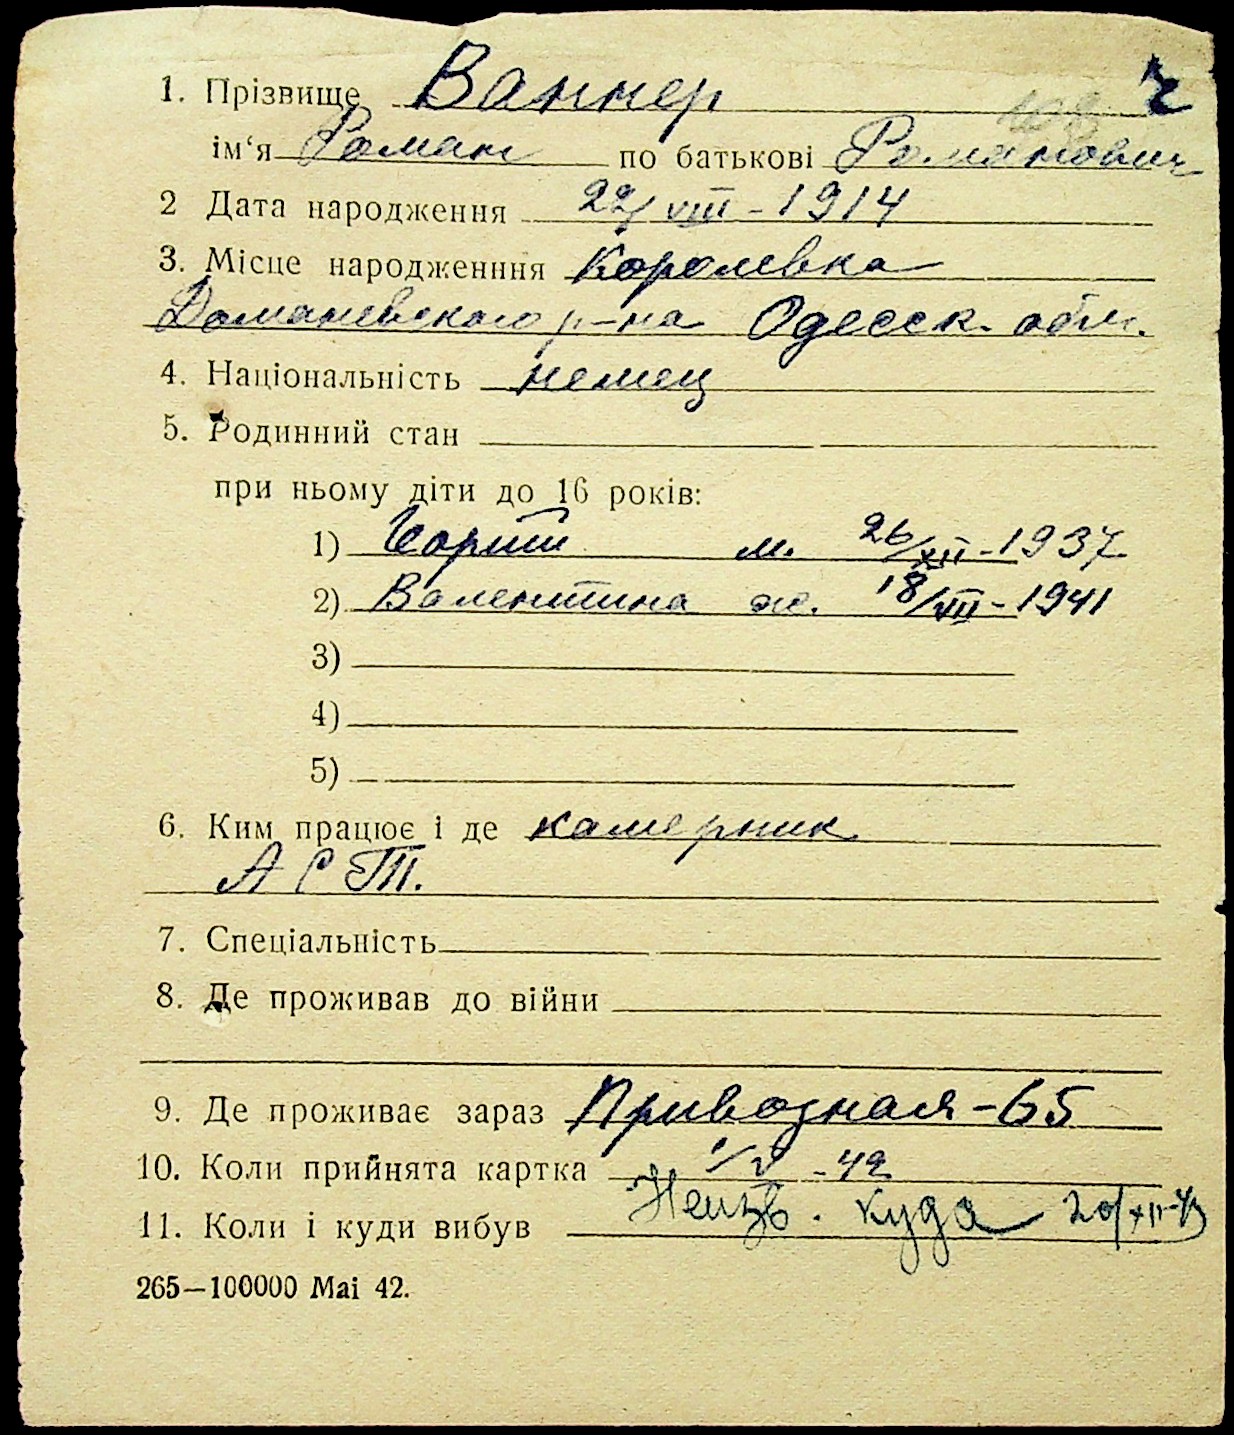 1. Прізвище Ваннер ч
ім‘я Роман по батькові Романович
2 Дата народження 22/VIII – 1914
3. Місце народженння Королевка
Доманевского р-на Одесск. обл.
4. Національність немец
5. Родинний стан
при ньому діти до 16 років:
1) м. 26/XII – 1937
2) Валентина ж. 18/VIII – 1941
3)
4)
5)
6. Ким працює і де камерник
А С Т.
7. Спеціальність
8. Де проживав до війни
9. Де проживає зараз Приводная – 65
10. Коли прийнята картка 1/V – 42
11. Коли і куди вибув Неизв. куда 20/XII-43
265—100000 Mai 42.